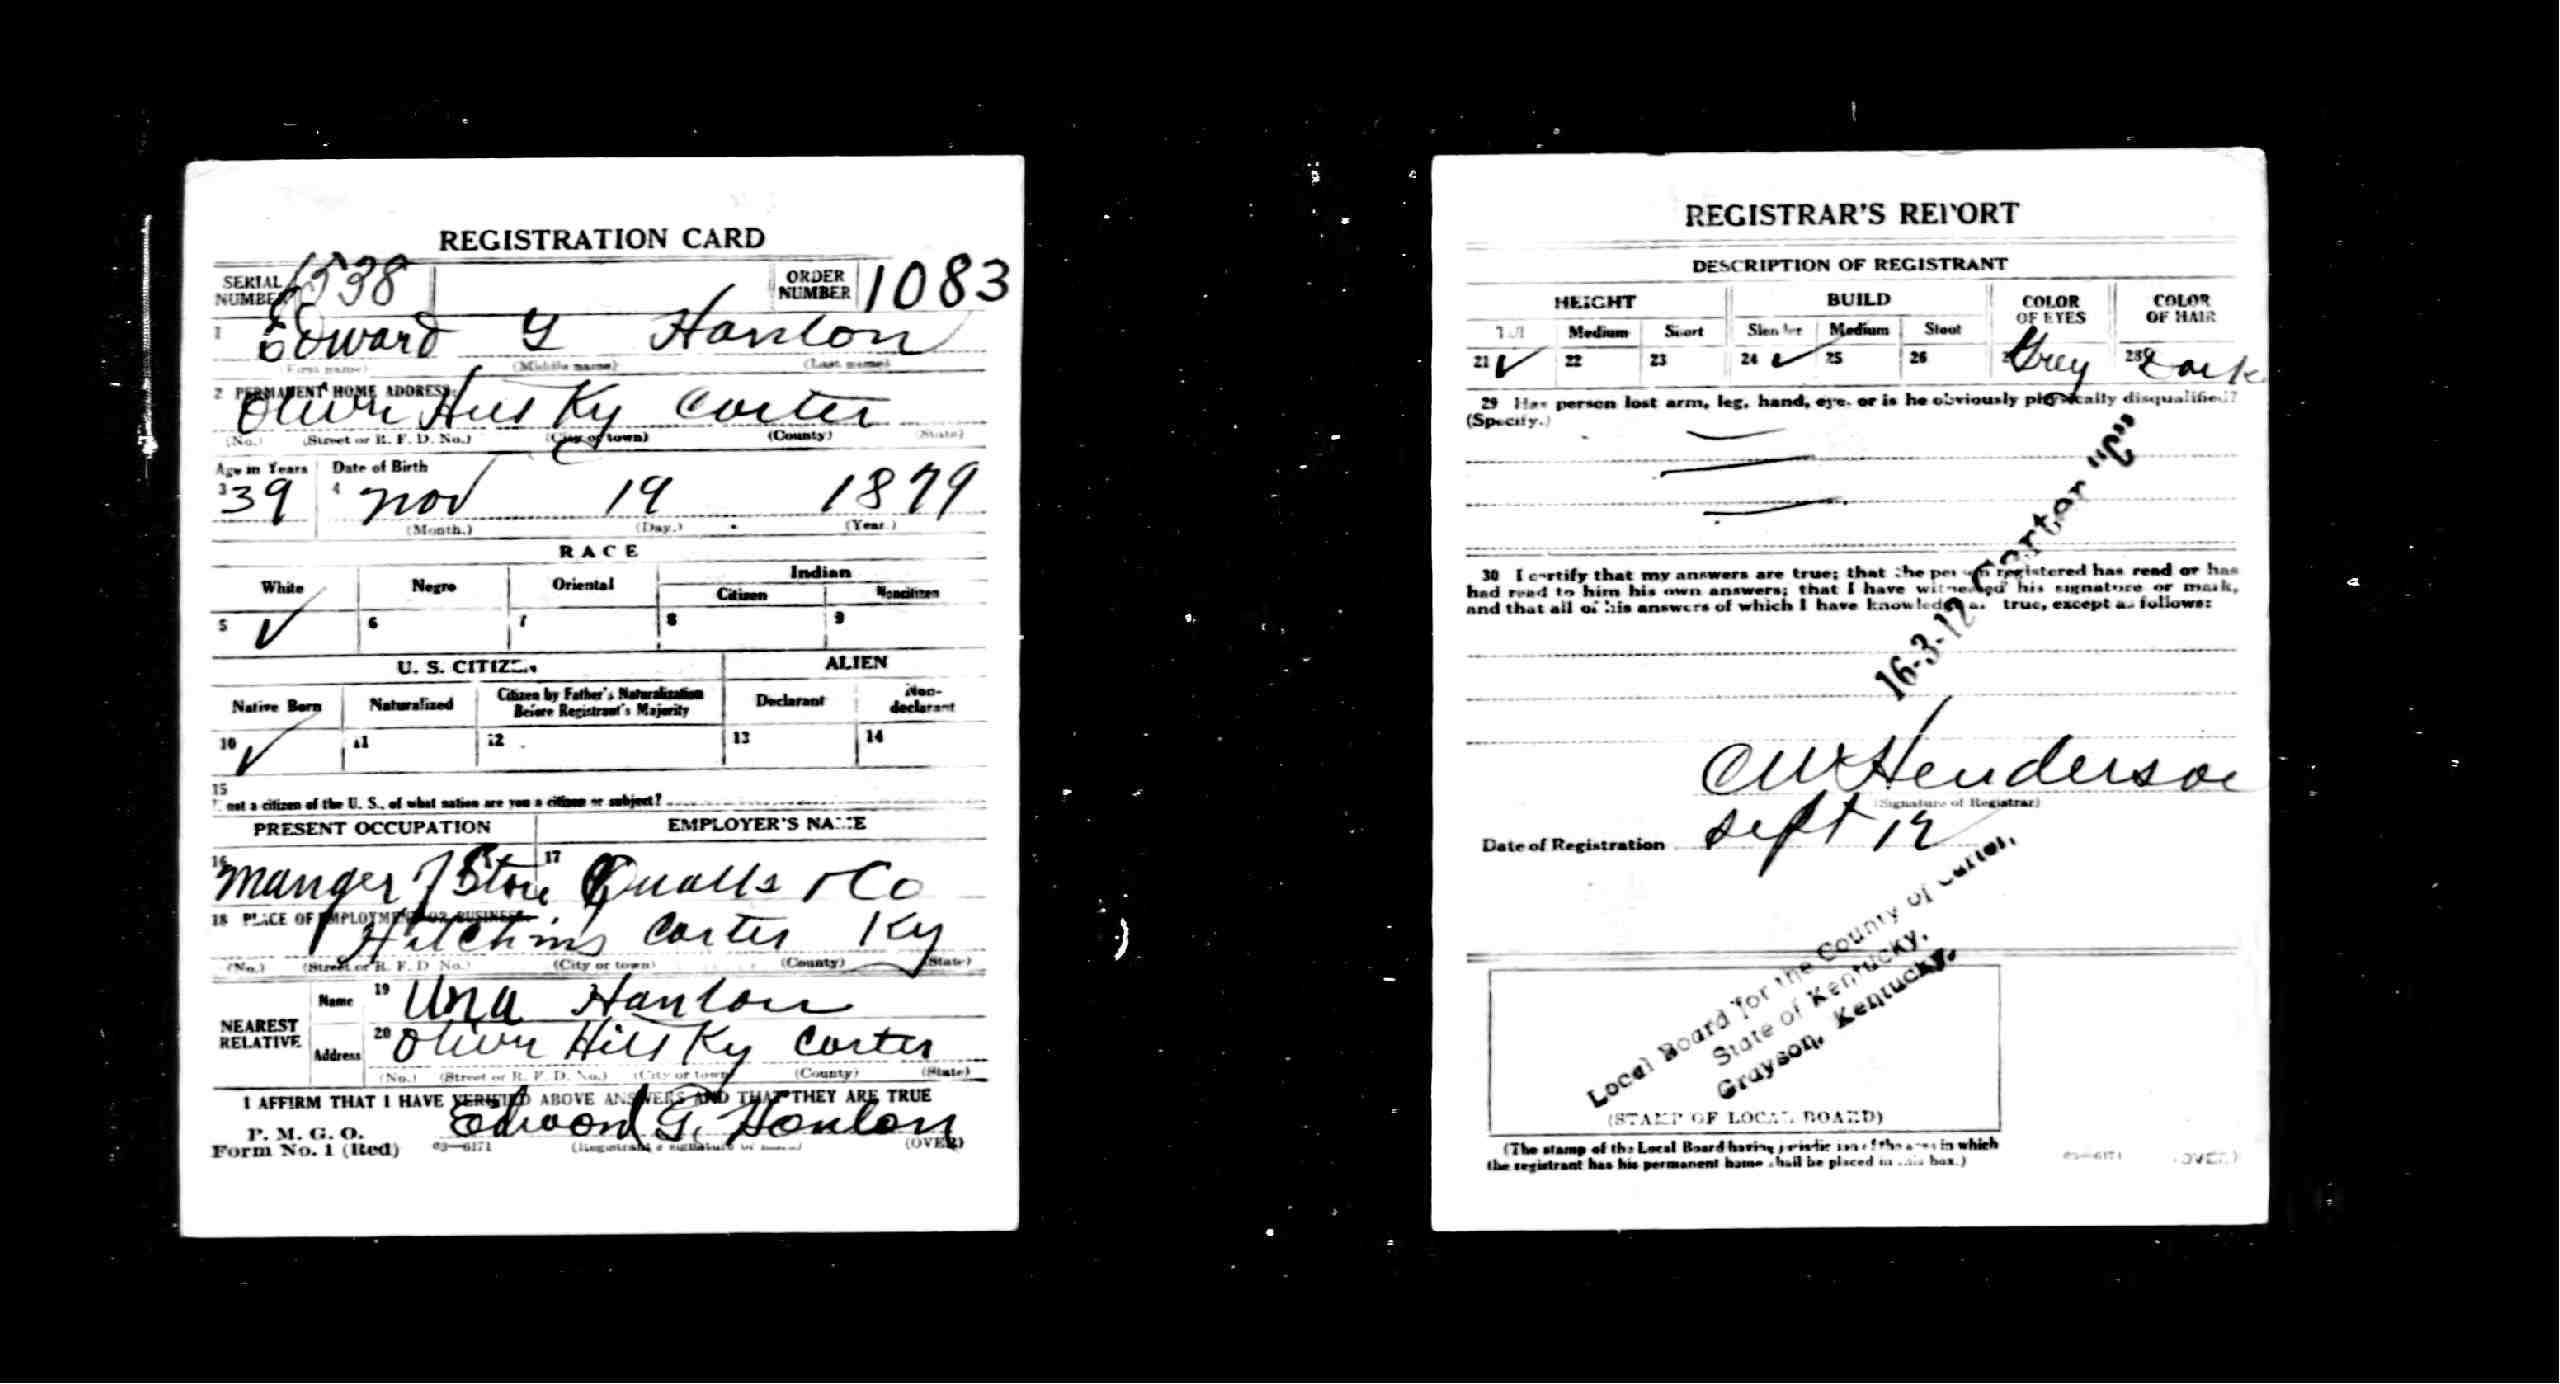 REGISTRATION CARD
SERIAL NUMBER 1538 ORDER NUMBER 1083
1 Edward G Hanlon
(First name) (Middle name) (Last name)
2 PERMANENT HOME ADDRESS:
Olive Hill Ky Carter
(No.) (Street or R. F. D. No.) (City or town) (County) (State)
Age in Years Date of Birth
3 39 4 Nov 19 1879
(Month.) (Day.) (Year.)
RACE
White Negro Oriental Indian
Citizen Noncitizen
5 ✓ 6 7 8 9
U. S. CITIZEN ALIEN
Native Born Naturalized Citizen by Father's Naturalization Before Registrant's Majority Declarant Non-declarant
10 ✓ 11 12 13 14
15
If not a citizen of the U. S., of what nation are you a citizen or subject?
PRESENT OCCUPATION EMPLOYER'S NAME
16 Manger Store 17 Qualls & Co
18 PLACE OF EMPLOYMENT OR BUSINESS:
Hitchins Carter Ky
(No.) (Street or R. F. D. No.) (City or town) (County) (State)
NEAREST RELATIVE
Name 19 Una Hanlon
Address 20 Olive Hill Ky Carter
(No.) (Street or R. F. D. No.) (City or town) (County) (State)
I AFFIRM THAT I HAVE VERIFIED ABOVE ANSWERS AND THAT THEY ARE TRUE
P. M. G. O.
Form No. 1 (Red) 03—6171 Edward G. Hanlon
(Registrant's signature or mark) (OVER)
REGISTRAR'S REPORT
DESCRIPTION OF REGISTRANT
HEIGHT BUILD COLOR OF EYES COLOR OF HAIR
Tall Medium Short Slender Medium Stout
21 ✓ 22 23 24 ✓ 25 26 27 Grey 28 Dark
29 Has person lost arm, leg, hand, eye, or is he obviously physically disqualified?
(Specify.)
30 I certify that my answers are true; that the person registered has read or has
had read to him his own answers; that I have witnessed his signature or mark,
and that all of his answers of which I have knowledge are true, except as follows:
16-3-12 Carter "C"
C W Henderson
(Signature of Registrar)
Date of Registration Sept 12
Local Board for the County of Carter,
State of Kentucky,
Grayson, Kentucky.
(STAMP OF LOCAL BOARD)
(The stamp of the Local Board having jurisdiction of the area in which
the registrant has his permanent home shall be placed in this box.)
03—6171 (OVER)